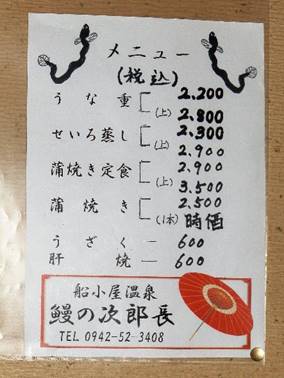 メニュー
(税込)
うな重 2,200
(上) 2,800
せいろ蒸し 2,300
(上) 2,900
蒲焼き定食 2,900
(上) 3,500
蒲焼き 2,500
(1本) 時価
うざく ー 600
肝焼 ー 600
船小屋温泉
鰻の次郎長
TEL 0942-52-3408